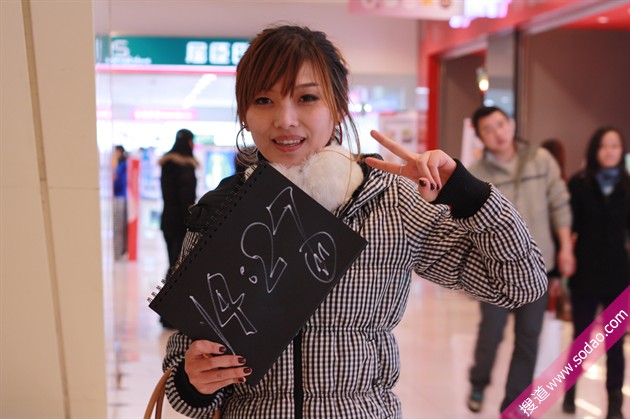 14:27
M
搜道 www.sodao.com